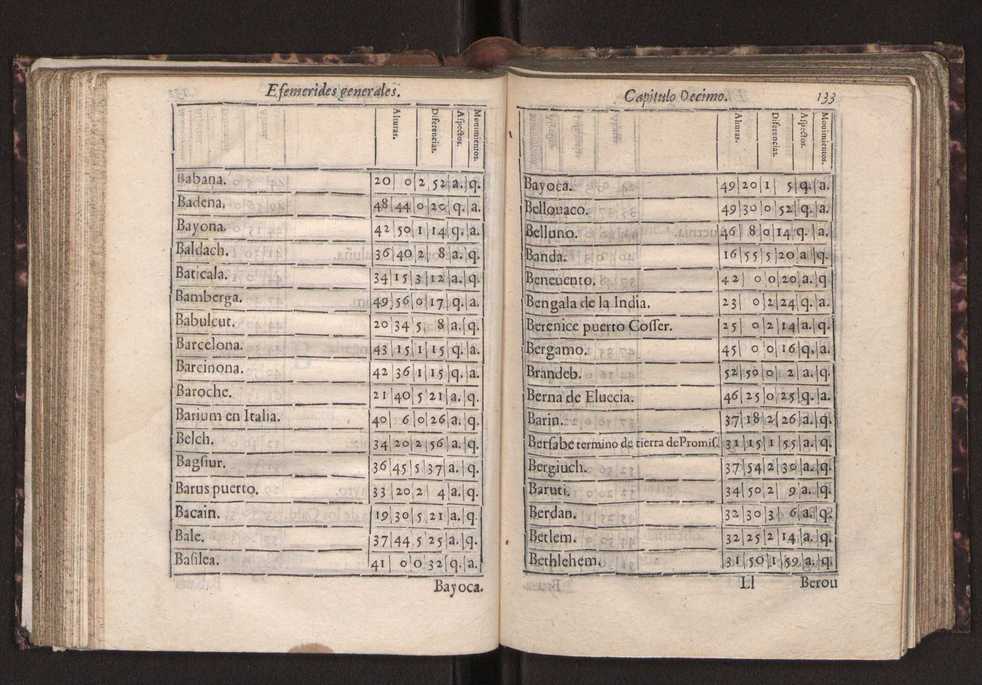 Efemerides generales.
Alturas. Diferencias. Aspectos. Mouimientos.
Babana. 20 0 2 52 a. q.
Badena. 48 44 0 20 q. a.
Bayona. 42 50 1 14 q. a.
Baldach. 36 40 2 8 a. q.
Baticala. 34 15 3 12 a. q.
Bamberga. 49 56 0 17 q. a.
Babulcut. 20 34 5 8 a. q.
Barcelona. 43 15 1 15 q. a.
Barcinona. 42 36 1 15 q. a.
Baroche. 21 40 5 21 a. q.
Barium en Italia. 40 6 0 26 a. q.
Belch. 34 20 2 56 a. q.
Bagsiur. 36 45 5 37 a. q.
Barus puerto. 33 20 2 4 a. q.
Bacain. 19 30 5 21 a. q.
Bale. 37 44 5 25 a. q.
Basilea. 41 0 0 32 q. a.
Bayoca.
Capitulo Decimo. 133
Alturas. Diferencias. Aspectos. Mouimientos.
Bayoca. 49 20 1 5 q. a.
Bellouaco. 49 30 0 52 q. a.
Belluno. 46 8 0 14 q. a.
Banda. 16 55 5 20 a q.
Beneuento. 42 0 0 20 a. q.
Bengala de la India. 23 0 2 24 q. a.
Berenice puerto Cosser. 25 0 2 14 a. q.
Bergamo. 45 0 0 16 q. a.
Brandeb. 52 50 0 2 a. q.
Berna de Eluccia. 46 25 0 25 q. a.
Barin. 37 18 2 26 a. q.
Bersabe termino de tierra de Promis. 31 15 1 55 a. q.
Bergiuch. 37 54 2 30 a. q.
Baruti. 34 50 2 9 a. q.
Berdan. 32 30 3 6 a. q.
Betlem. 32 25 2 14 a. q.
Bethlehem. 31 50 1 59 a. q.
Ll Berou